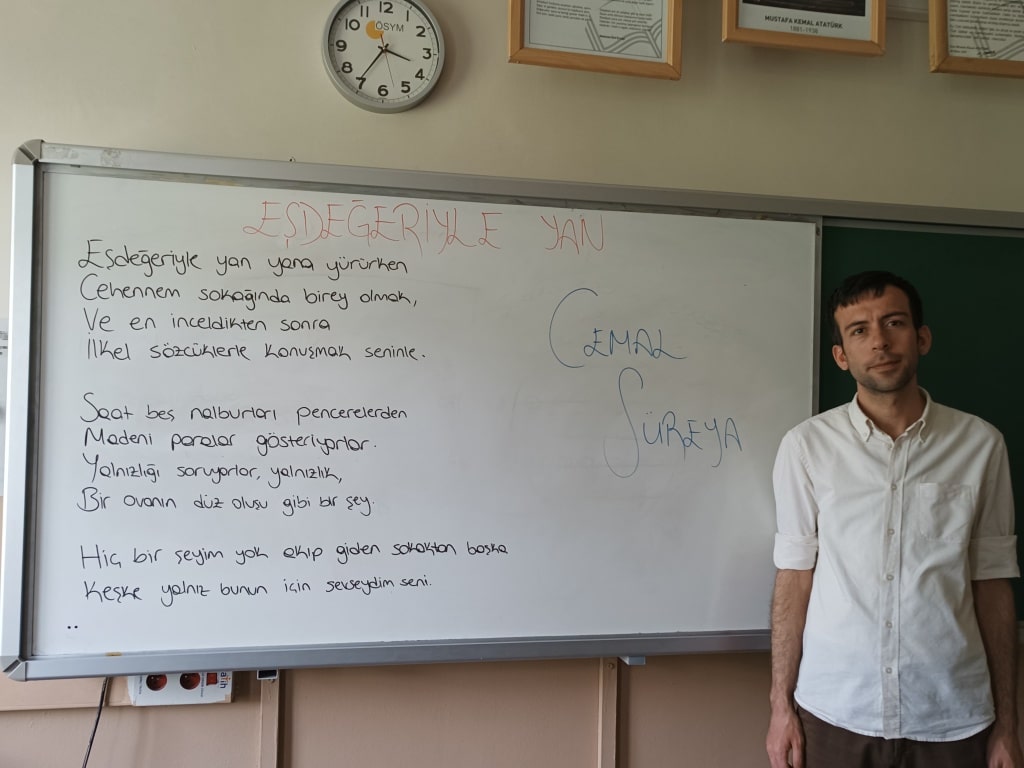 12
1
2
3
4
5
6
7
8
9
10
11
ÖSYM
MUSTAFA KEMAL ATATÜRK
1881-1938
EŞDEĞERİYLE YAN
Eşdeğeriyle yan yana yürürken
Cehennem sokağında birey olmak,
Ve en inceldikten sonra
İlkel sözcüklerle konuşmak seninle.
Saat beş nalburları pencerelerden
Madeni paralar gösteriyorlar.
Yalnızlığı soruyorlar, yalnızlık,
Bir ovanın düz oluşu gibi bir şey.
Hiç bir şeyim yok akıp giden sokaktan başka
Keşke yalnız bunun için sevseydim seni.
..
CEMAL
SÜREYA